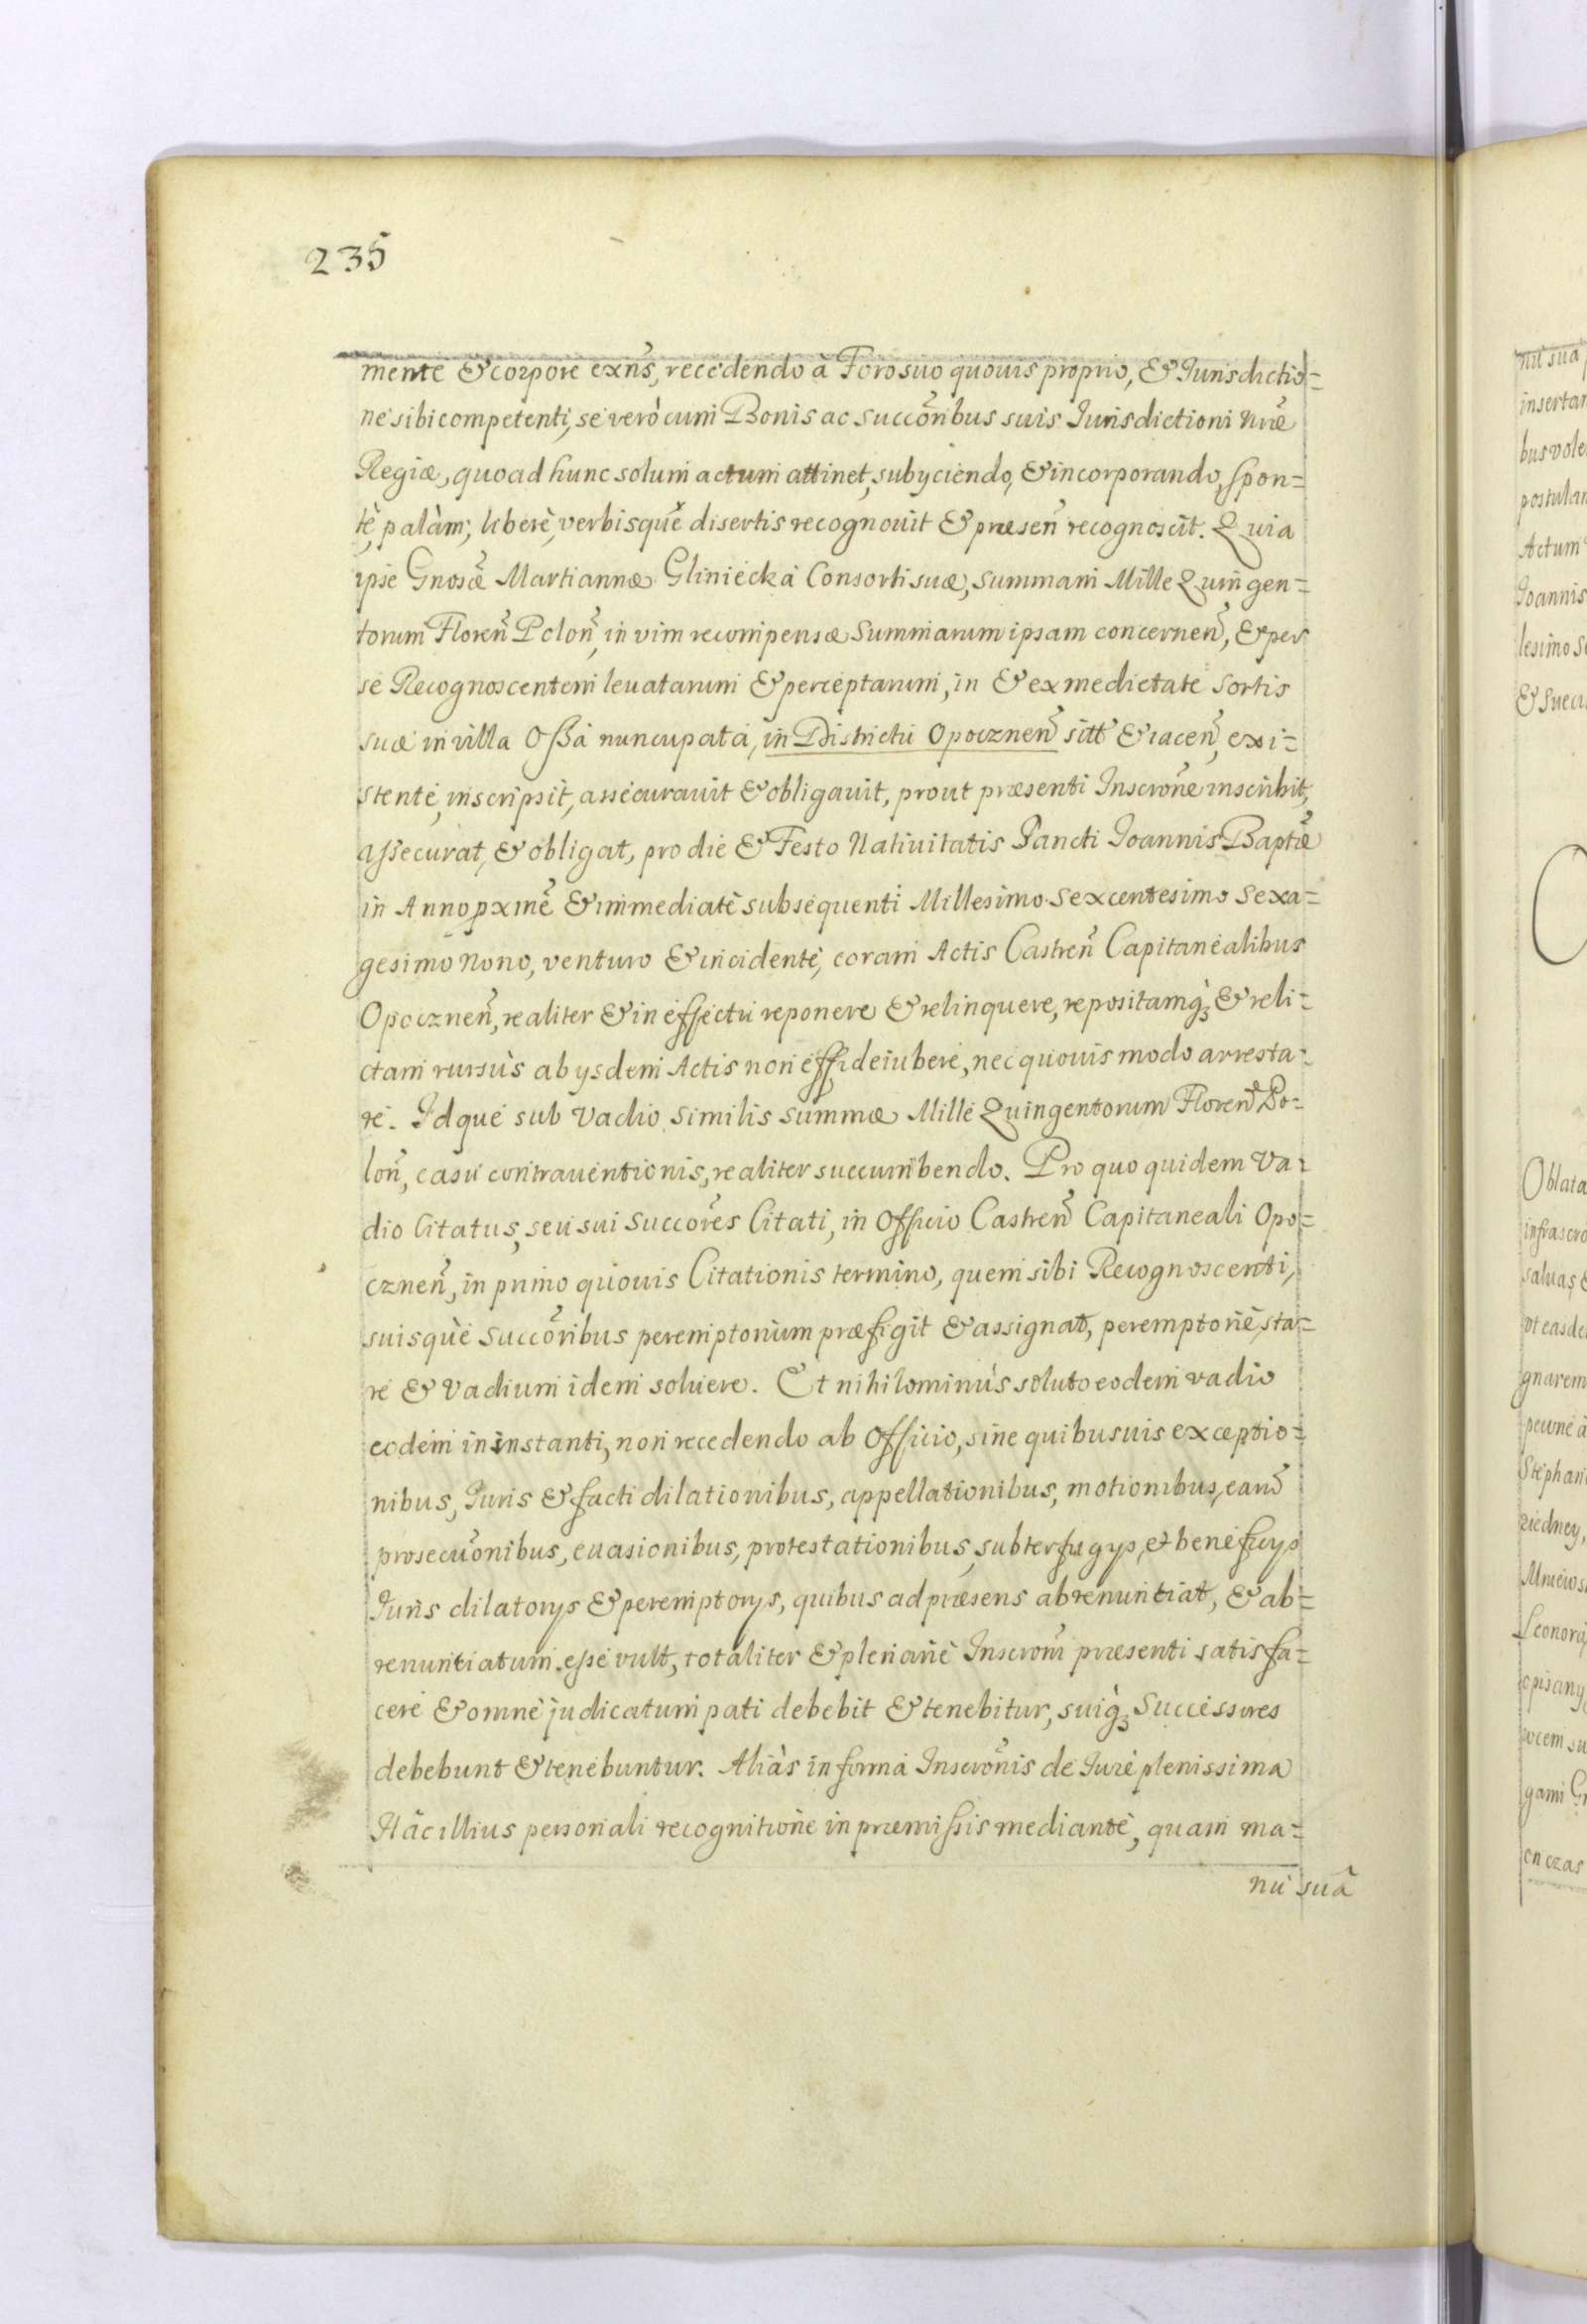 235
mente & corpore exñs, recedendo à Foro suo quovis proprio, & Jurisdictio=
ne sibi competenti, se verò cum Bonis ac succõribus suis Jurisdictioni nrẽ
Regiæ, quoad hunc solum actum attinet, subyciendo, & incorporando, spon=
tè, palàm, liberè, verbisque disertis recognouit & præseñ recognoscit. Quia
ipse Gnosæ Martiannæ Gliniecka Consorti suæ, summam Mille Quingen=
torum Floreñ Poloñ, in vim recompensæ Summarum ipsam concerneñ, & per
se Recognoscentem leuatarum & perceptarum, in & ex medietate Sortis
suæ in villa Ossa nuncupata, in Districtu Opoczneñ sitt & iaceñ, exi=
stente, inscripsit, assecurauit & obligauit, prout præsenti Inscrõne inscribit,
assecurat, & obligat, pro die & Festo Natiuitatis Sancti Joannis Baptæ
in Anno pxmẽ & immediatè subsequenti Millesimo Sexcentesimo Sexa=
gesimo Nono, venturo & incidente, coram Actis Castreñ Capitanealibus
Opoczneñ, realiter & in effectu reponere & relinquere, repositamq; & reli=
ctam rursùs ab ysdem Actis non effideiubere, nec quouis modo arresta=
re. Idque sub vadio similis summæ Mille Quingentorum Floreñ Po=
loñ, casu contrauentionis, realiter succumbendo. Pro quo quidem Va=
dio Citatus, seu sui Succores Citati, in Officio Castreñ Capitaneali Opo=
czneñ, in primo quouis Citationis termino, quem sibi Recognoscenti,
suisquè Succõribus peremptorium præfigit & assignat, peremptoriè, sta=
re & Vadium idem soluere. Et nihilominùs soluto eodem vadio
eodem in instanti, non recedendo ab Officio, sine quibusuis exceptio=
nibus, Juris & facti dilationibus, appellationibus, motionibus, earũ
prosecuõnibus, euasionibus, protestationibus, subterfugys, et beneficys
Juris dilatorys & peremptorys, quibus ad præsens abrenuntiat, & ab=
renuntiatum esse vult, totaliter & plenariè Inscrom̃ præsenti satisfa=
cere & omne judicatum pati debebit & tenebitur, suiq; Successores
debebunt & tenebuntur. Aliàs in forma Inscrõnis de Jure plenissima
Hâc illius personali recognitione in præmissis mediante, quam ma=
nu suâ